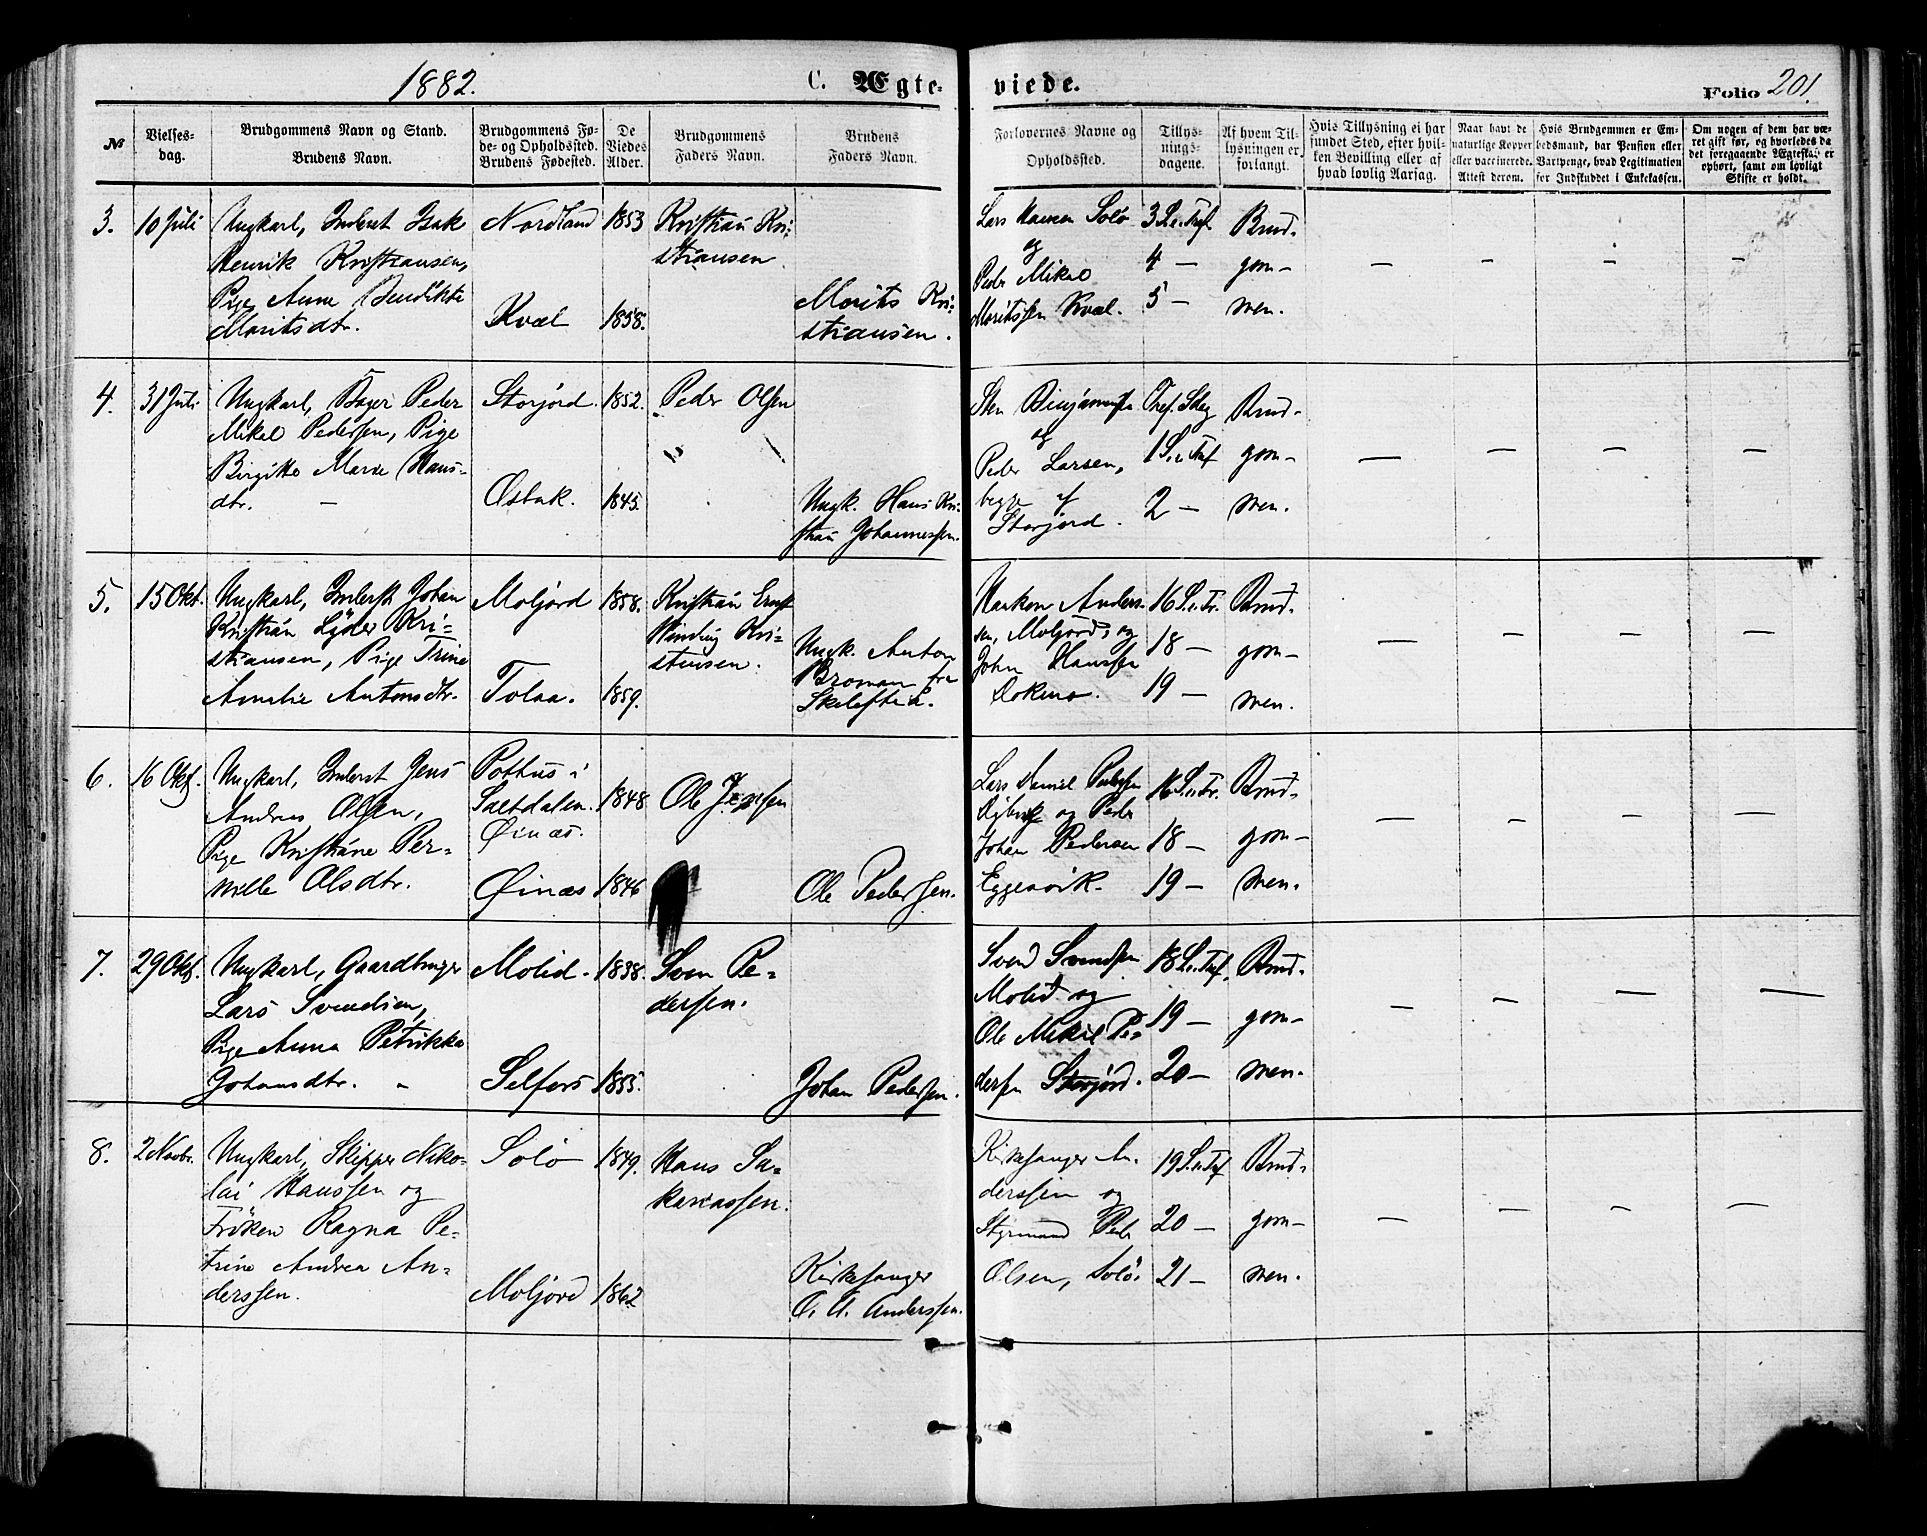 1882.
C. Ægte-
viede.
Folio 201
№
Vielses-
dag.
Brudgommens Navn og Stand.
Brudens Navn.
Brudgommens Fø-
de- og Opholdssted.
Brudens Fødested.
De
Viedes
Alder.
Brudgommens
Faders Navn.
Brudens
Faders Navn.
Forlovernes Navne og
Opholdssted.
Tillys-
nings-
dagene.
Af hvem Til-
lysningen er
forlangt.
Hvis Tillysning ei har
fundet Sted, efter hvil-
ken Bevilling eller af
hvad lovlig Aarsag.
Naar havt de
naturlige Kopper
eller vaccinerede.
Attest derom.
Hvis Brudgommen er Em-
bedsmand, har Pension eller
Vartpenge, hvad Legitimation
for Indskuddet i Enkekassen.
Om nogen af dem har væ-
ret gift før, og hvorledes da
det foregaaende Ægteskab er
ophørt, samt om lovligt
Skifte er holdt.
3.
10 Juli
Ungkarl, Inderst Isak
Henrik Kristiansen,
Pige Anne Bendikte
Moritsdtr.
Nordland
Kvæl
1853
1858.
Kristian Kri-
stiansen
Morits Kri-
stiansen.
Lars Hansen Solø
og
Peder Mikal
Moritssen Kvæl.
3 S. e. Tref.
4 —
5 —
Brud-
gom-
men.
4.
31 Juli
Ungkarl, Bager Peder
Mikal Pedersen, Pige
Birgitte Marie Hans-
dtr.
Storjord.
Østbak.
1852.
1845.
Peder Olsen
Ungk. Hans Kri-
stian Johannessen.
Sten
og
Peder Larsen,
begge af
Storjord.
Tref. Sdag
1 S. e. Tref
2 —
Brud-
gom-
men.
5.
15 Okt.
Ungkarl, Inderst Johan
Kristian Lyder Kri-
stiansen, Pige Trine
Amalie Antonsdtr.
Moljord
Tolaa.
1858.
1859.
Kristian Ernst
Winding Kri-
stensen.
Ungk. Anton
Broman fra
Skelefteå.
Haakon Anders-
sen, Moljord, og
John Hanssen
Dokmo.
16 S. e. Tr.
18 —
19 —
Brud-
gom-
men.
6.
16 Okt.
Ungkarl, Inderst Jens
Andreas Olsen,
Pige Kristiane Per-
nille Olsdtr.
Pothus i
Saltdalen.
Øinæs.
Øinæs
1848
1846
Ole Jensen
Ole Pedersen.
Lars Daniel Pedersen
og Peder
Johan Pedersen
Eggesvik.
16 S. e. Tr.
18 —
19 —
Brud-
gom-
men.
7.
29 Okt.
Ungkarl, Gaardbruger
Lars Svendsen,
Pige Anna Petrikka
Johansdtr.
Molid.
Selfors
1838.
1855.
Sven Pe-
dersen.
Johan Pedersen.
Svend Svendsen
Molid og
Ole Mikal Pe-
dersen Storjord.
18 S. e. Tref.
19 —
20 —
Brud-
gom-
men.
8.
2 Novbr.
Ungkarl, Skipper Niko-
lai Hanssen og
Frøken Ragna Pe-
trine Andrea An-
derssen.
Solø
Moljord
1849.
1862
Hans Sa-
kariassen.
Kirkesanger
O. A. Anderssen.
Kirkesanger An-
derssen og
Styrmand Peder
Olsen, Solø.
19 S. e. Tref
20 —
21 —
Brud-
gom-
men.